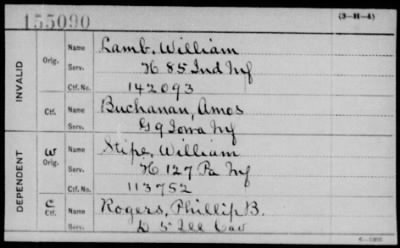 155090 (3-H-4)
INVALID
Orig. Name Lamb, William
Serv. H 85 Ind Inf
Ctf. No. 142093
Ctf. Name Buchanan, Amos
Serv. G 9 Iowa Inf
DEPENDENT
W Orig. Name Stipe, William
Serv. H 127 Pa Inf
Ctf. No. 113752
C Ctf. Name Rogers, Phillip B.
Serv. D 5 Ill Cav